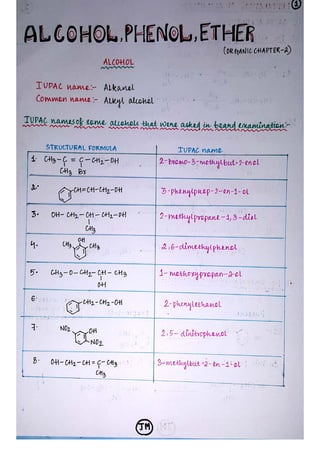 ①
ALCOHOL, PHENOL, ETHER
(ORGANIC CHAPTER-2)
ALCOHOL
IUPAC name:- Alkanol
Common name:- Alkyl alcohol
IUPAC names of some alcohols that were asked in board examination:-
STRUCTURAL FORMULA IUPAC name
1. CH3-C = C-CH2-OH 2-bromo-3-methylbut-2-enol
CH3 Br
2. CH=CH-CH2-OH 3-phenylprop-2-en-1-ol
3. OH-CH2-CH-CH2-OH 2-methylpropane-1,3-diol
CH3
4. OH 2,6-dimethylphenol
CH3 CH3
5. CH3-O-CH2-CH-CH3 1-methoxypropan-2-ol
OH
6. CH2-CH2-OH 2-phenylethanol
7. NO2 OH 2,5-dinitrophenol
NO2
8. OH-CH2-CH=C-CH3 3-methylbut-2-en-1-ol
CH3
JM